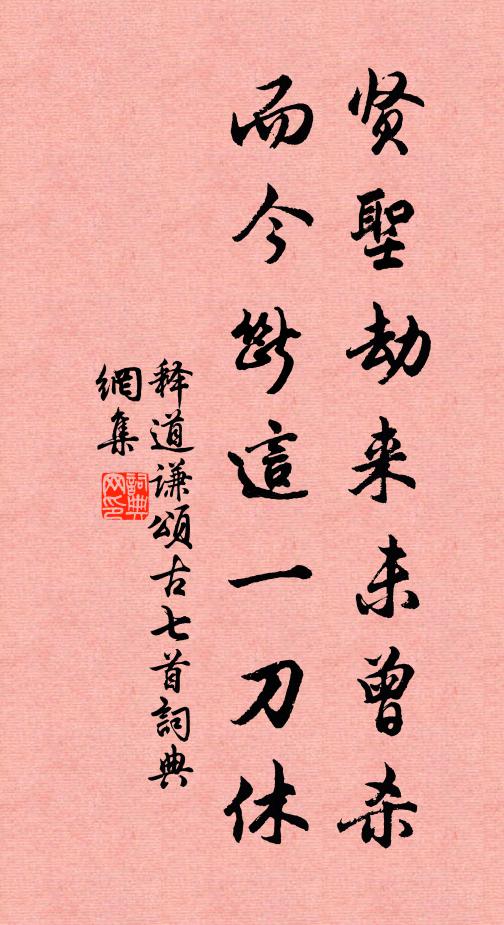 贤聖劫来未曾杀
而今断這一刀休
释道谦頌古七首詞典
網集
詞典
网印